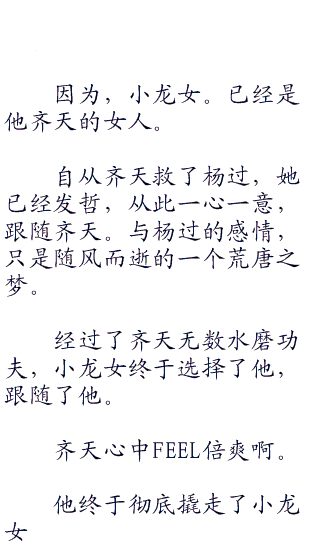 因为，小龙女。已经是
他齐天的女人。
自从齐天救了杨过，她
已经发哲，从此一心一意，
跟随齐天。与杨过的感情，
只是随风而逝的一个荒唐之
梦。
经过了齐天无数水磨功
夫，小龙女终于选择了他，
跟随了他。
齐天心中FEEL倍爽啊。
他终于彻底撬走了小龙
女